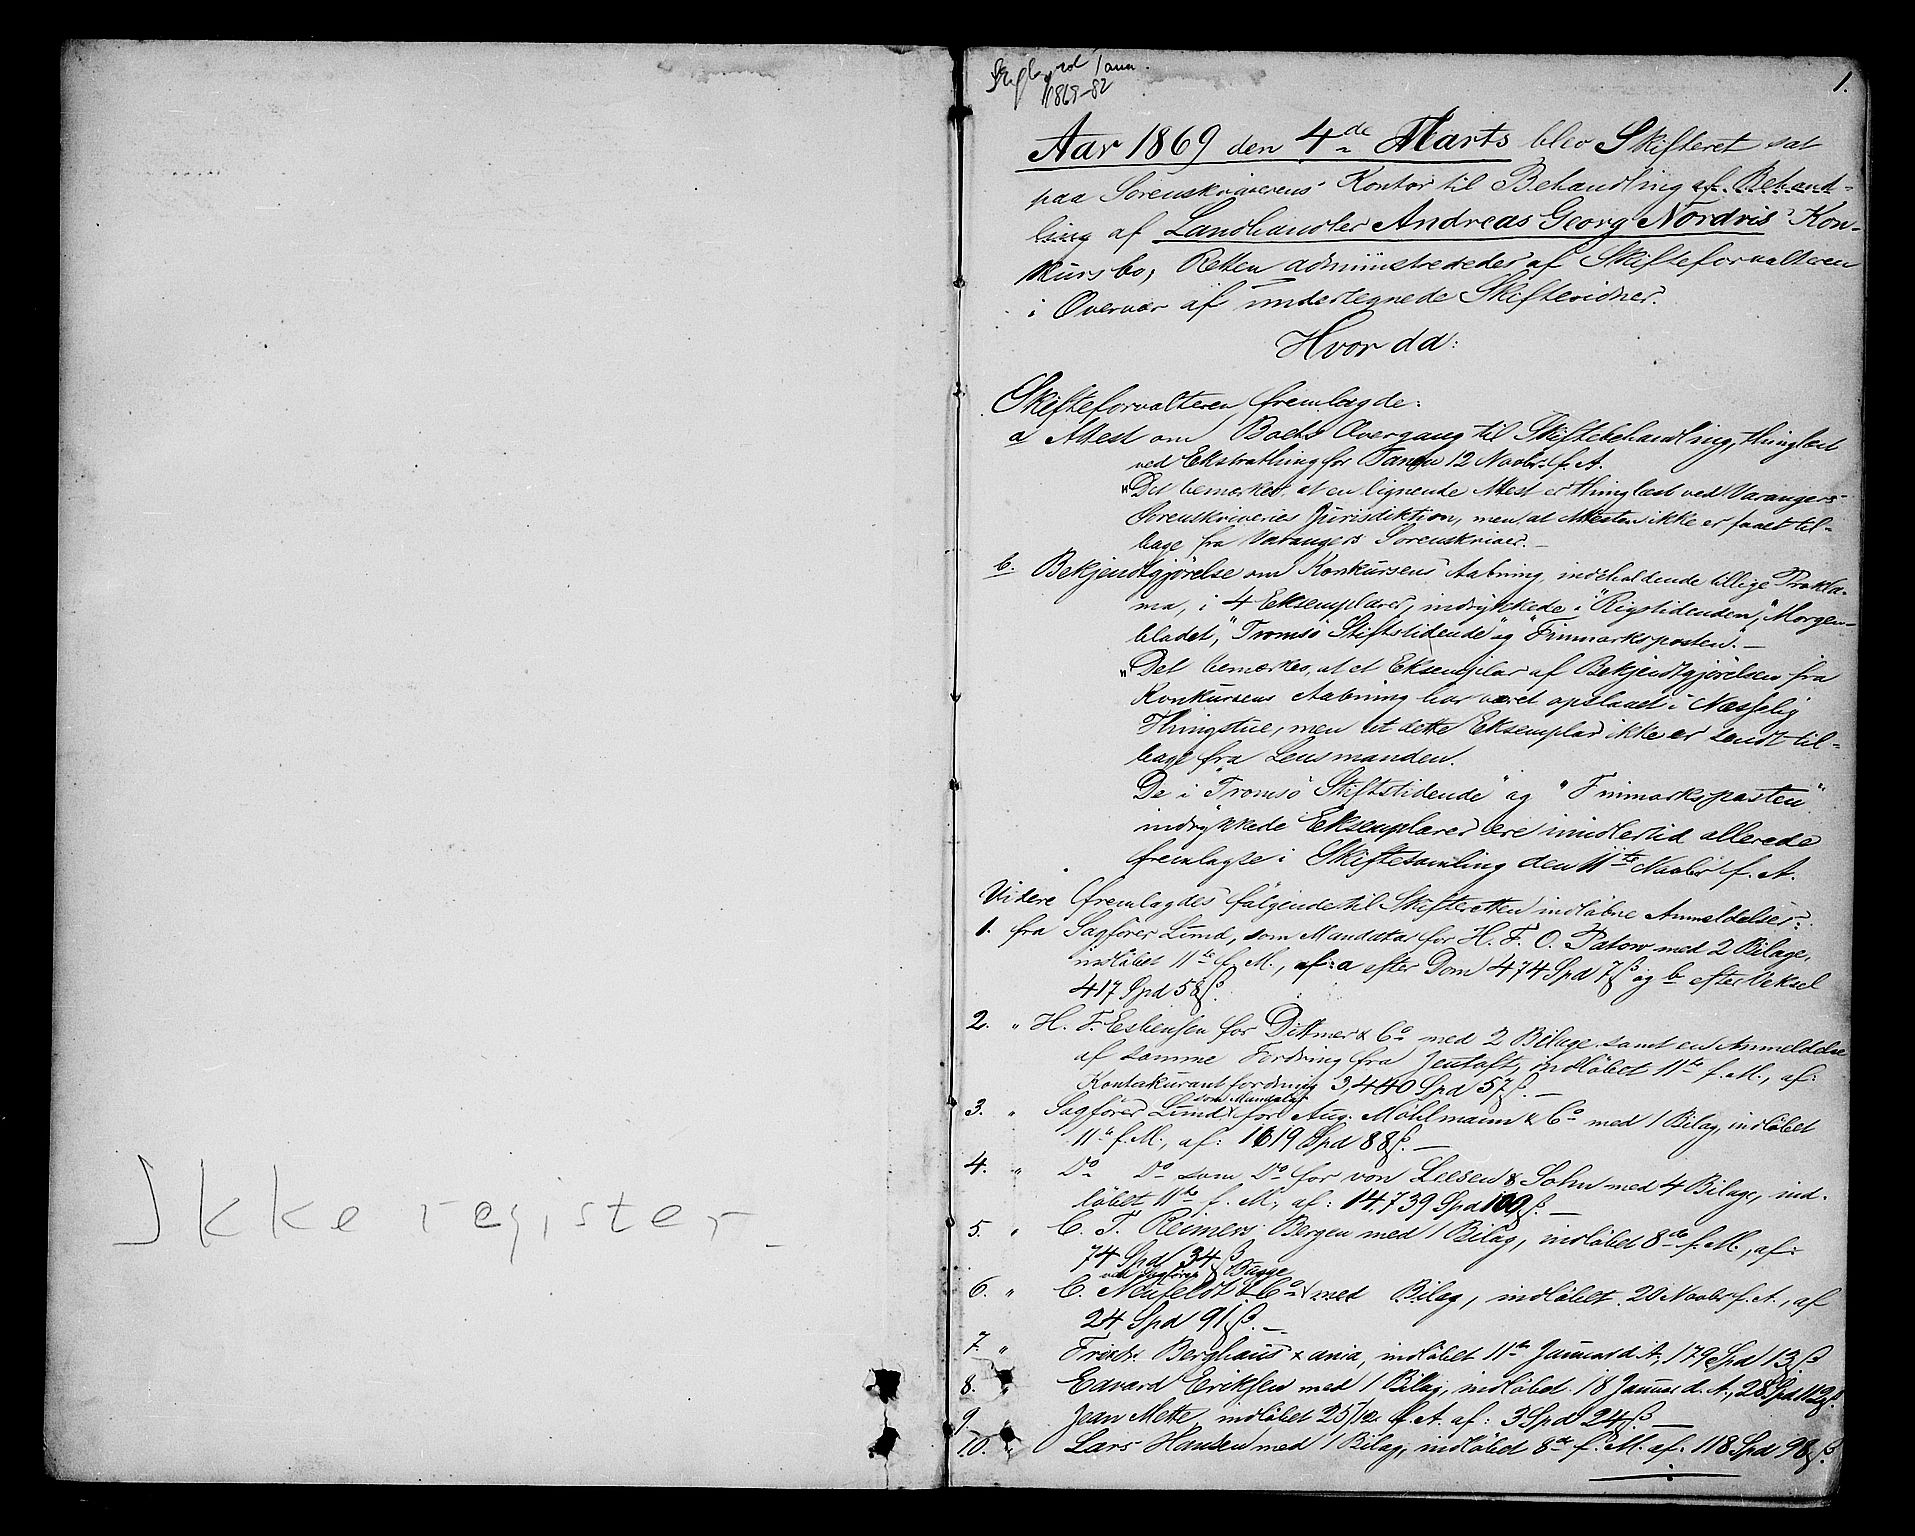 Ikke register.
Tana
1869-82
1.
Aar 1869 den 4de Marts blev Skifteret sat
paa Sorenskriverens Kontor til Behandling af Behand-
ling af Landhandler Andreas Georg Nordvis Kon-
kursbo; Retten administreredes af Skifteforvalteren
i Overvær af undertegnede Skiftevidner.
Hvorda:
Skifteforvalteren fremlagde:
a Attest om Boets Overgang til Skiftebehandling, thinglæst
ved Ekstrathing for Tanen 12 Novbr. f. A.
"Det bemærkes, at en lignende Attest er thinglæst ved Varangers
Sorenskriveries Jurisdiktion, men at Attesten ikke er faaet til-
bage fra Varangers Sorenskriver. —
b. Bekjendtgjørelse om Konkursens Aabning, indeholdende tillige Prokla-
ma, i 4 Eksemplarer, indrykkede i "Rigstidenden", "Morgen-
bladet", "Tromsø Stiftstidende" og "Finmarksposten". —
"Det bemærkes, at et Eksemplar af Bekjendtgjørelsen fra
Konkursens Aabning har været opslaaet i Næsseby
Thingstue, men at dette Eksemplar ikke er sendt til-
bage fra Lensmanden.
De i "Tromsø Stiftstidende" og "Finmarksposten"
indrykkede Eksemplarer ere imidlertid allerede
fremlagte i Skiftesamling den 11te Novbr f. A.
Videre fremlagdes følgende til Skifteretten indløbne Anmeldelser:
1. fra Sagfører Lund, som Mandatar for H. F. O. Patow med 2 Bilage,
indløbet 11te f. M., af: a efter Dom 474 Spd 7 ß og b efter Veksel
417 Spd 58 ß.
2. " H. F. Esbensen for Dittmer & Co med 2 Bilage samt en Anmeldelse
af samme Fordring fra Jentoft, indløbet 11te f. M., af:
Kontokurantfordring 3,440 Spd 57 ß. —
3. " Sagfører Lund som Mandatar for Aug. Möhlmann & Co med 1 Bilag, indløbet
11te f. M., af: 1619 Spd 88 ß. —
4. " Do Do som Do for von Leesen & Sohn med 4 Bilage, ind-
løbet 11te f. M., af: 14,739 Spd 109 ß. —
5. " C. T. Reimers Bergen med 1 Bilag, indløbet 8de f. M., af:
74 Spd 34 ß
6. " C. Neufeldt & Co ved Sagfører Bugge med Bilag, indløbet 20 Novbr f. A., af
24 Spd 91 ß. —
7. " Friedr. Berghaus indløbet 11te Januar d. A., 179 Spd 13 ß
8. " Edvard Eriksen med 1 Bilag, indløbet 18 Januar d. A., 28 Spd 112 ß.
9 " Jean Mette, indløbet 25/12 f. A. af: 3 Spd 24 ß. —
10. " Lars Hansen med 1 Bilag, indløbet 8de f. M. af: 118 Spd 98 ß.